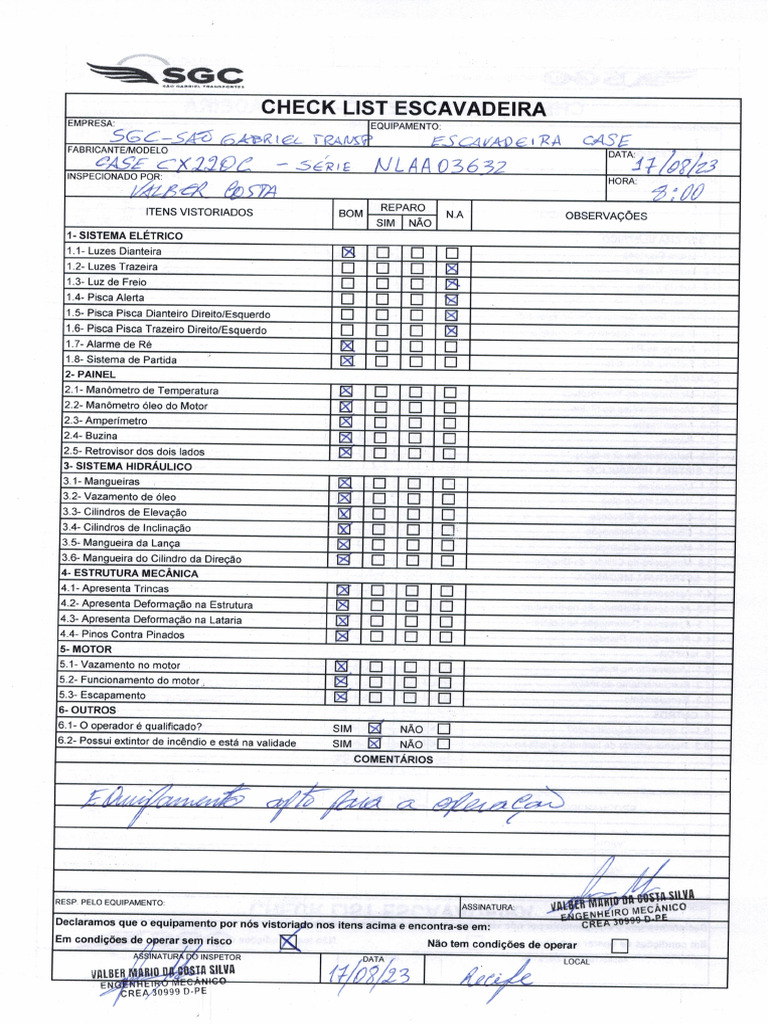 SGC
SÃO GABRIEL TRANSPORTES
CHECK LIST ESCAVADEIRA
EMPRESA: SGC-SAO GABRIEL TRANSP EQUIPAMENTO: ESCAVADEIRA CASE
FABRICANTE/MODELO CASE CX220C - SÉRIE NLAA03632 DATA: 17/08/23
INSPECIONADO POR: VALBER COSTA HORA: 8:00
ITENS VISTORIADOS BOM REPARO SIM NÃO N.A OBSERVAÇÕES
1- SISTEMA ELÉTRICO
1.1- Luzes Dianteira
1.2- Luzes Trazeira
1.3- Luz de Freio
1.4- Pisca Alerta
1.5- Pisca Pisca Dianteiro Direito/Esquerdo
1.6- Pisca Pisca Trazeiro Direito/Esquerdo
1.7- Alarme de Ré
1.8- Sistema de Partida
2- PAINEL
2.1- Manômetro de Temperatura
2.2- Manômetro óleo do Motor
2.3- Amperímetro
2.4- Buzina
2.5- Retrovisor dos dois lados
3- SISTEMA HIDRÁULICO
3.1- Mangueiras
3.2- Vazamento de óleo
3.3- Cilindros de Elevação
3.4- Cilindros de Inclinação
3.5- Mangueira da Lança
3.6- Mangueira do Cilindro da Direção
4- ESTRUTURA MECÂNICA
4.1- Apresenta Trincas
4.2- Apresenta Deformação na Estrutura
4.3- Apresenta Deformação na Lataria
4.4- Pinos Contra Pinados
5- MOTOR
5.1- Vazamento no motor
5.2- Funcionamento do motor
5.3- Escapamento
6- OUTROS
6.1- O operador é qualificado? SIM NÃO
6.2- Possui extintor de incêndio e está na validade SIM NÃO
COMENTÁRIOS
Equipamento apto para a operação
RESP. PELO EQUIPAMENTO: ASSINATURA: VALBER MARIO DA COSTA SILVA
ENGENHEIRO MECÂNICO
CREA 30999 D-PE
Declaramos que o equipamento por nós vistoriado nos itens acima e encontra-se em:
Em condições de operar sem risco Não tem condições de operar
ASSINATURA DO INSPETOR DATA LOCAL
VALBER MARIO DA COSTA SILVA 17/08/23 Recife
ENGENHEIRO MECÂNICO
CREA 30999 D-PE